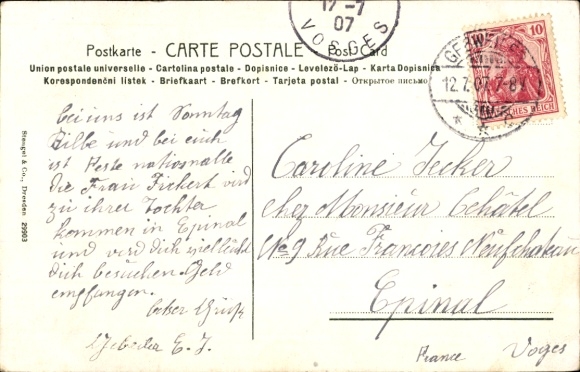 12-7
07
VOSGES
Postkarte - CARTE POSTALE - Post Card
Union postale universelle - Cartolina postale - Dopisnice - Levelező-Lap - Karta Dopisnica
Korespondenční listek - Briefkaart - Brefkort - Tarjeta postal - Открытое письмо
GEBWEILER
12.7.07.7-8
10
DEUTSCHES REICH
bei uns ist Sonntag
und bei euch
ist Feste nationalle
die Frau wird
zu ihrer Tochter
kommen in Epinal
und wird dich vielleicht
dich besuchen Geld
empfangen.
Gruß
E. J.
Stengel & Co., Dresden 29903
Caroline Jecker
chez Monsieur Échâtel
No 9 Rue François Neufchateau
Epinal
France Voges